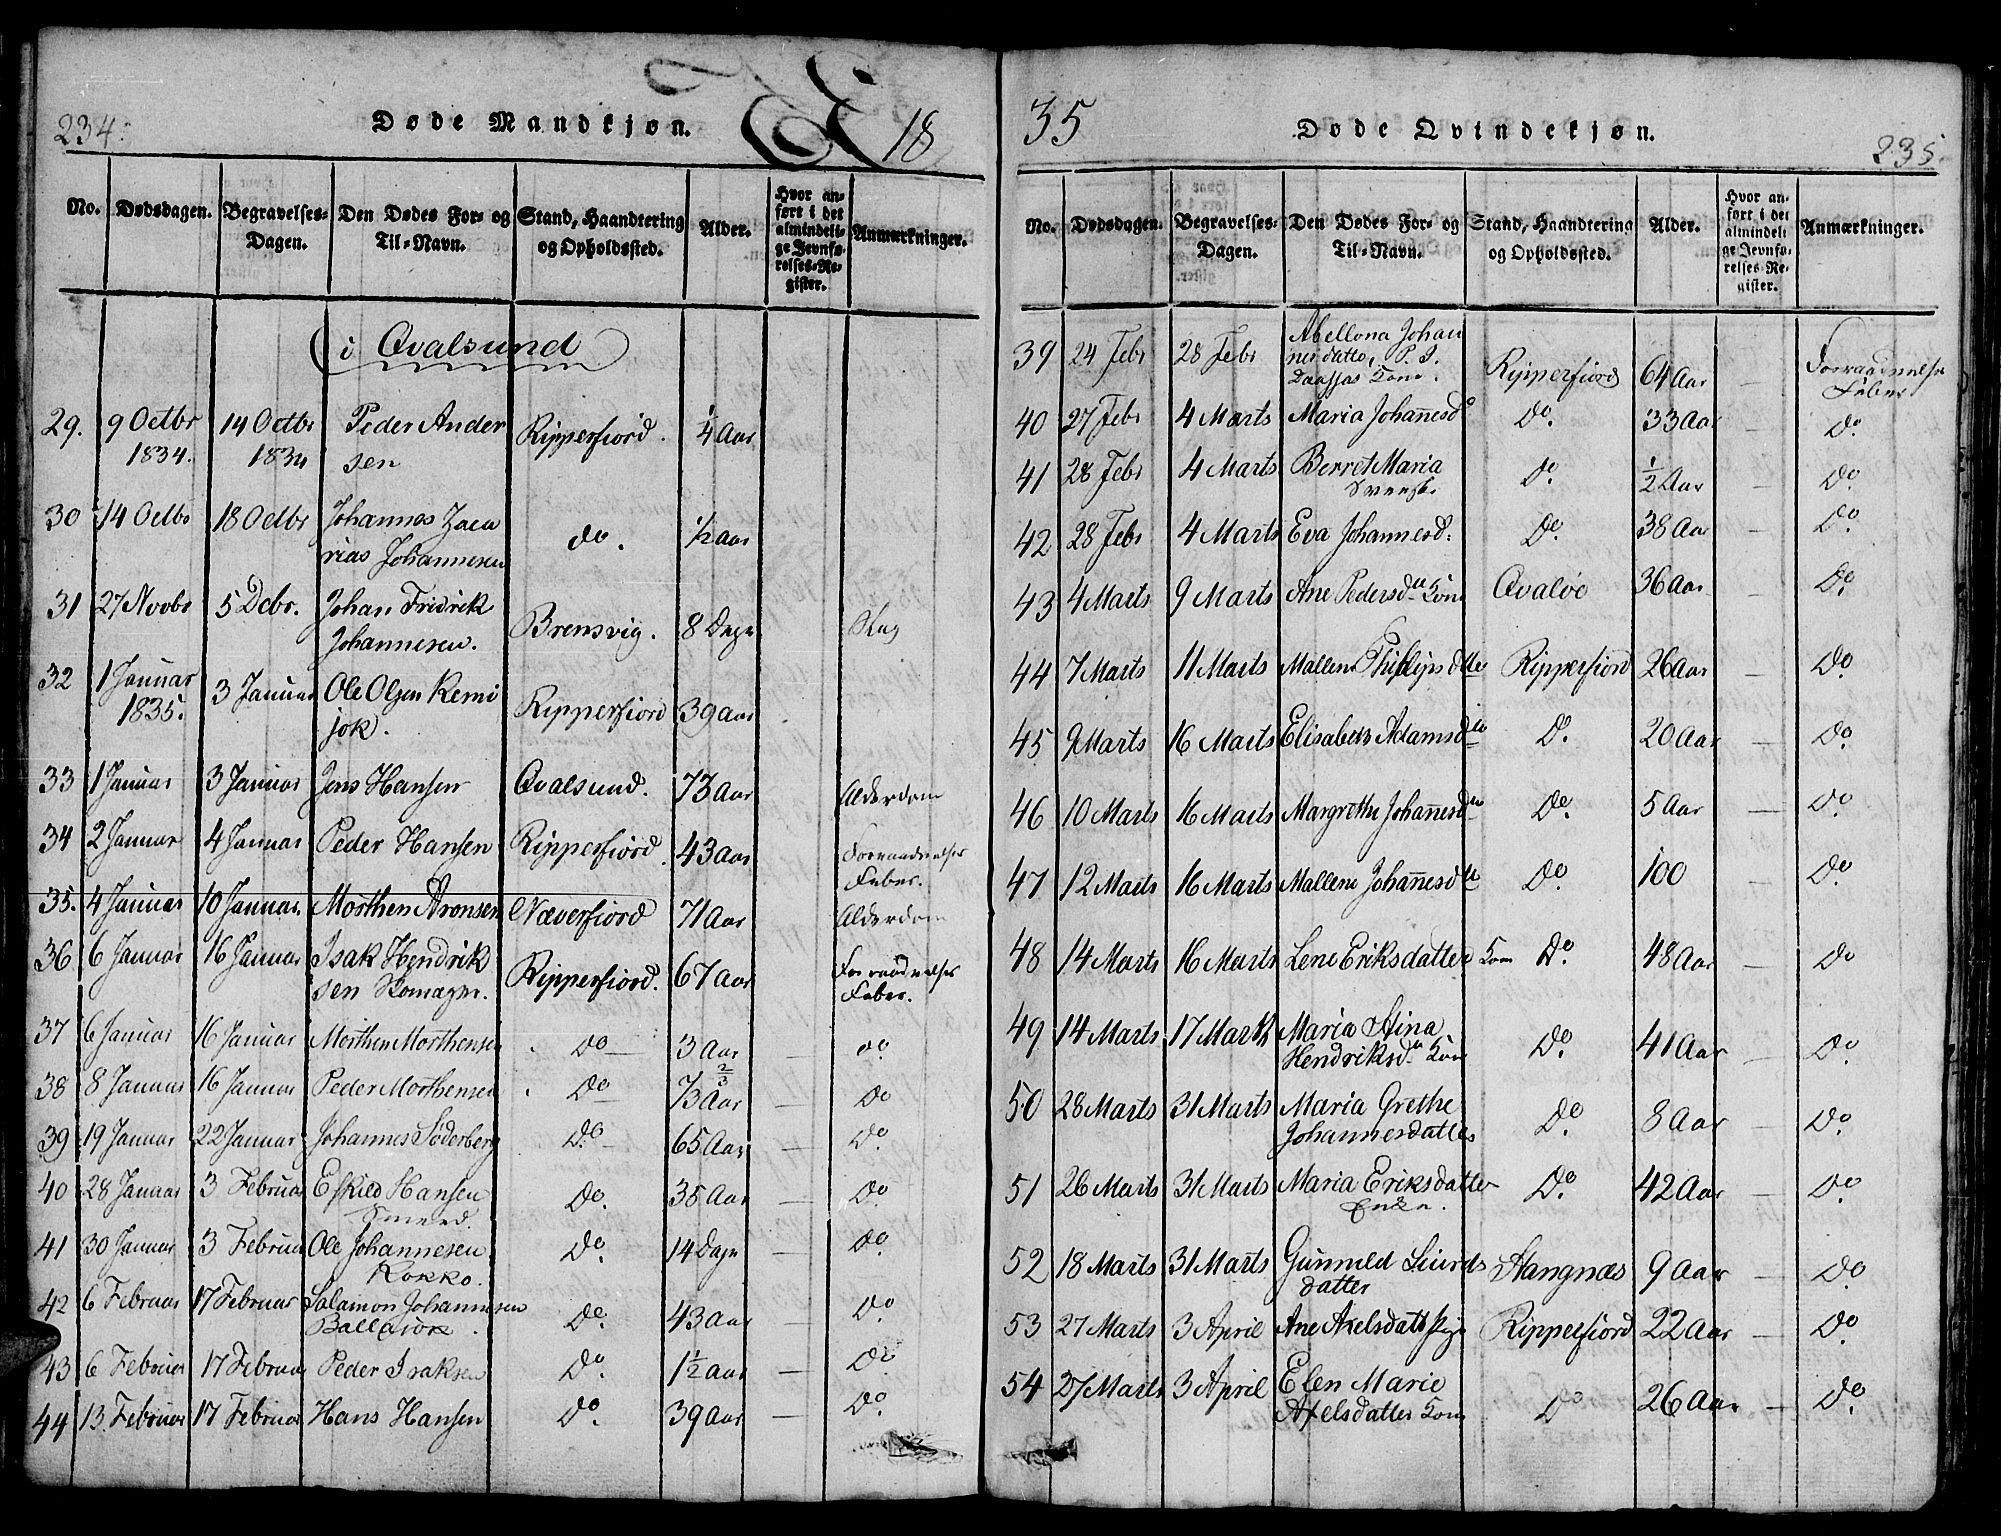 234.
Døde Mandkjøn.
18
No. Dødsdagen. Begravelses-Dagen. Den Dødes For- og Til-Navn. Stand, Haandtering og Opholdssted. Alder. Hvor anført i det almindelige Jevnførelses-Register. Anmærkninger.
i Qvalsund
29. 9 Octbr 1834. 14 Octbr 1834 Peder Andersen Ripperfiord. 1/4 Aar
30 14 Octbr 18 Octbr Johannes Zacarias Johannesen do. 1/2 Aar
31 27 Novbr 5 Decbr. Johan Fridrik Johannesen. Brensvig. 8 Dage
32 1 Januar 1835. 3 Januar Ole Olsen Kemijok. Ripperfiord 39 Aar
33 1 Januar 3 Januar Jens Hansen Qvalsund. 73 Aar Alderdom
34 2 Januar 4 Januar Peder Hansen Ripperfiord. 43 Aar Forraadnelses Feber.
35. 4 Januar 10 Januar. Morthen Aronsen Næverfiord 71 Aar Alderdom
36 6 Januar 16 Januar Isak Hendriksen Ripperfiord. 67 Aar Forraadnelses Feber.
37 6 Januar 16 Januar Morthen Morthensen Do 3 Aar do.
38 8 Januar 16 Januar Peder Morthensen Do 7 2/3 Aar Do
39 19 Januar 22 Januar Johannes Söderberg Do 65 Aar Do
40 28 Januar 3 Februar Eskild Hansen Do. 35 Aar Do
41 30 Januar 3 Februar Ole Johannesen Kokko. Do. 14 Dage Do.
42 6 Februar 17 Februar Salamon Johannesen Ballajok. Do. 43 Aar Do.
43 6 Februar 17 Februar Peder Isaksen Do. 1 1/2 Aar Do
44 13. Februar 17 Februar Hans Hansen Do. 39 Aar Do.
35
Døde Qvindekjøn.
235.
No. Dødsdagen. Begravelses-Dagen. Den Dødes For- og Til-Navn. Stand, Haandtering og Opholdssted. Alder. Hvor anført i det almindelige Jevnførelses-Register. Anmærkninger.
39 24 Febr 28 Febr Abellona Johannesdatter, P. J. Kone. Ripperfiord 64 Aar Forraadnelses Feber
40 27 Febr 4 Marts Maria Johanesd Do. 33 Aar Do.
41 28 Febr 4 Marts Berret Maria Do. 1/2 Aar Do.
42 28 Febr 4 Marts Eva Johannesd: Do. 38 Aar Do.
43 4 Marts 9 Marts Ane Pedersd. Kone Qvaløe 36 Aar Do.
44 7 Marts 11 Marts Mallene Philipsdtter Ripperfiord 26 Aar Do
45 9 Marts 16 Marts Elisabeth Adamsd Do. 20 Aar Do.
46 10 Marts 16 Marts Margrethe Johanesd Do. 5 Aar Do.
47 12 Marts 16 Marts Mallene Johanesd Do. 100 Do.
48 14 Marts 16 Marts Lene Eriksdatter Kone Do. 48 Aar Do
49 14 Marts 17 Marts Maria Stina Hendriksd. Kone Do. 41 Aar Do.
50 28 Marts 31 Marts Maria Grethe Johannesdatter Do. 8 Aar Do.
51 26 Marts 31 Marts Maria Eriksdatter Enke. Do. 42 Aar Do.
52 18 Marts 31 Marts Gunneld Siurdsdatter Stangnæs 9 Aar Do
53 27 Marts 3 April Ane Axelsdattr Pige Ripperfiord 22 Aar Do.
54 27 Marts 3 April Elen Marie Axelsdatter Kone Do 26 Aar Do.